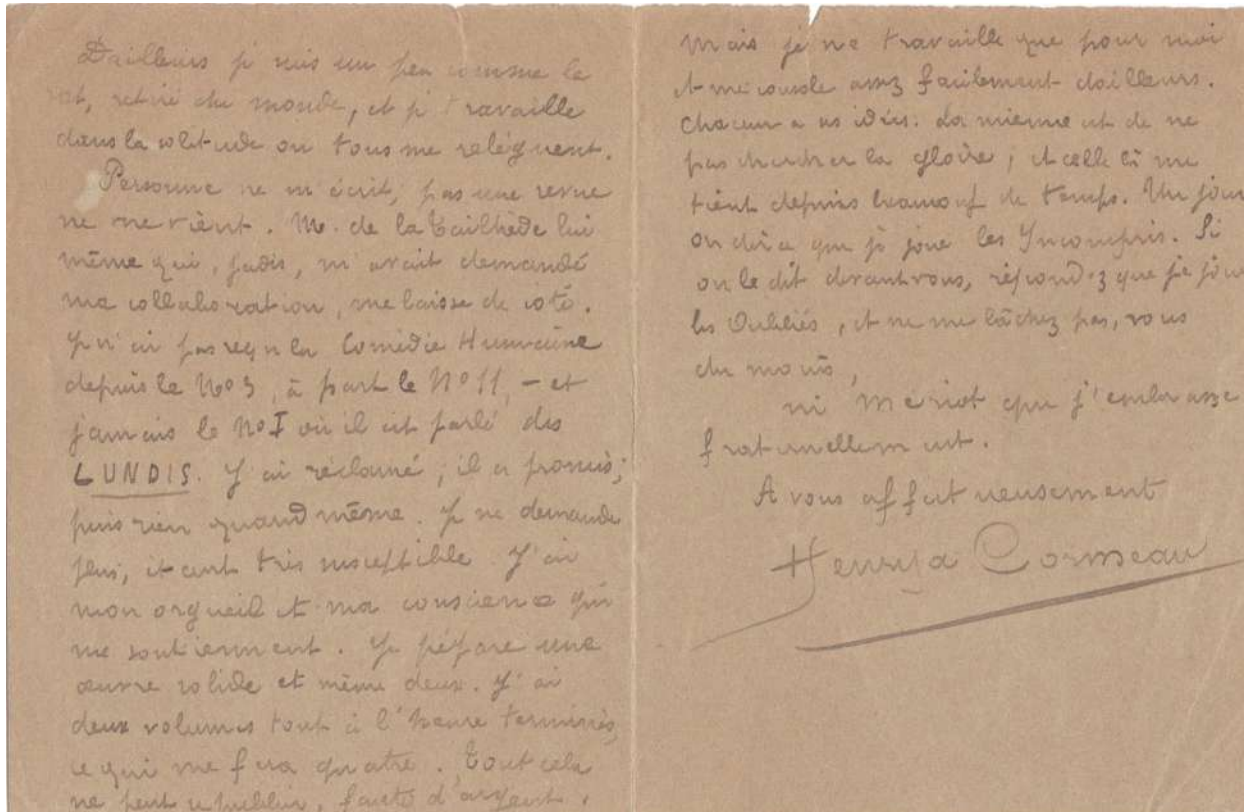 D'ailleurs je suis un peu comme le
rat, retiré du monde, et je travaille
dans la solitude où tous me relèguent.
Personne ne m'écrit, pas une revue
ne me vient. M. de la Tailhède lui
même qui, jadis, m'avait demandé
ma collaboration, me laisse de côté.
Je n'ai pas reçu la Comédie Humaine
depuis le No 3, à part le No 11, – et
jamais le No I où il est parlé des
LUNDIS. J'ai réclamé; il a promis;
puis rien quand même. Je ne demande
plus, étant très susceptible. J'ai
mon orgueil et ma conscience qui
me soutiennent. Je prépare une
œuvre solide et même deux. J'ai
deux volumes tout à l'heure terminés,
ce qui me fera quatre. Tout cela
ne peut se publier, faute d'argent.
Mais je ne travaille que pour moi
et me console assez facilement d'ailleurs.
Chacun a ses idées. La mienne est de ne
pas chercher la gloire; et celle là me
tient depuis beaucoup de temps. Un jour
on dira que je joue les Incompris. Si
on le dit devant vous, répondez que je joue
les Oubliés, et ne me lâchez pas, vous
du moins,
ni Mériot que j'embrasse
fraternellement.
A vous affectueusement
Henry Cormeau